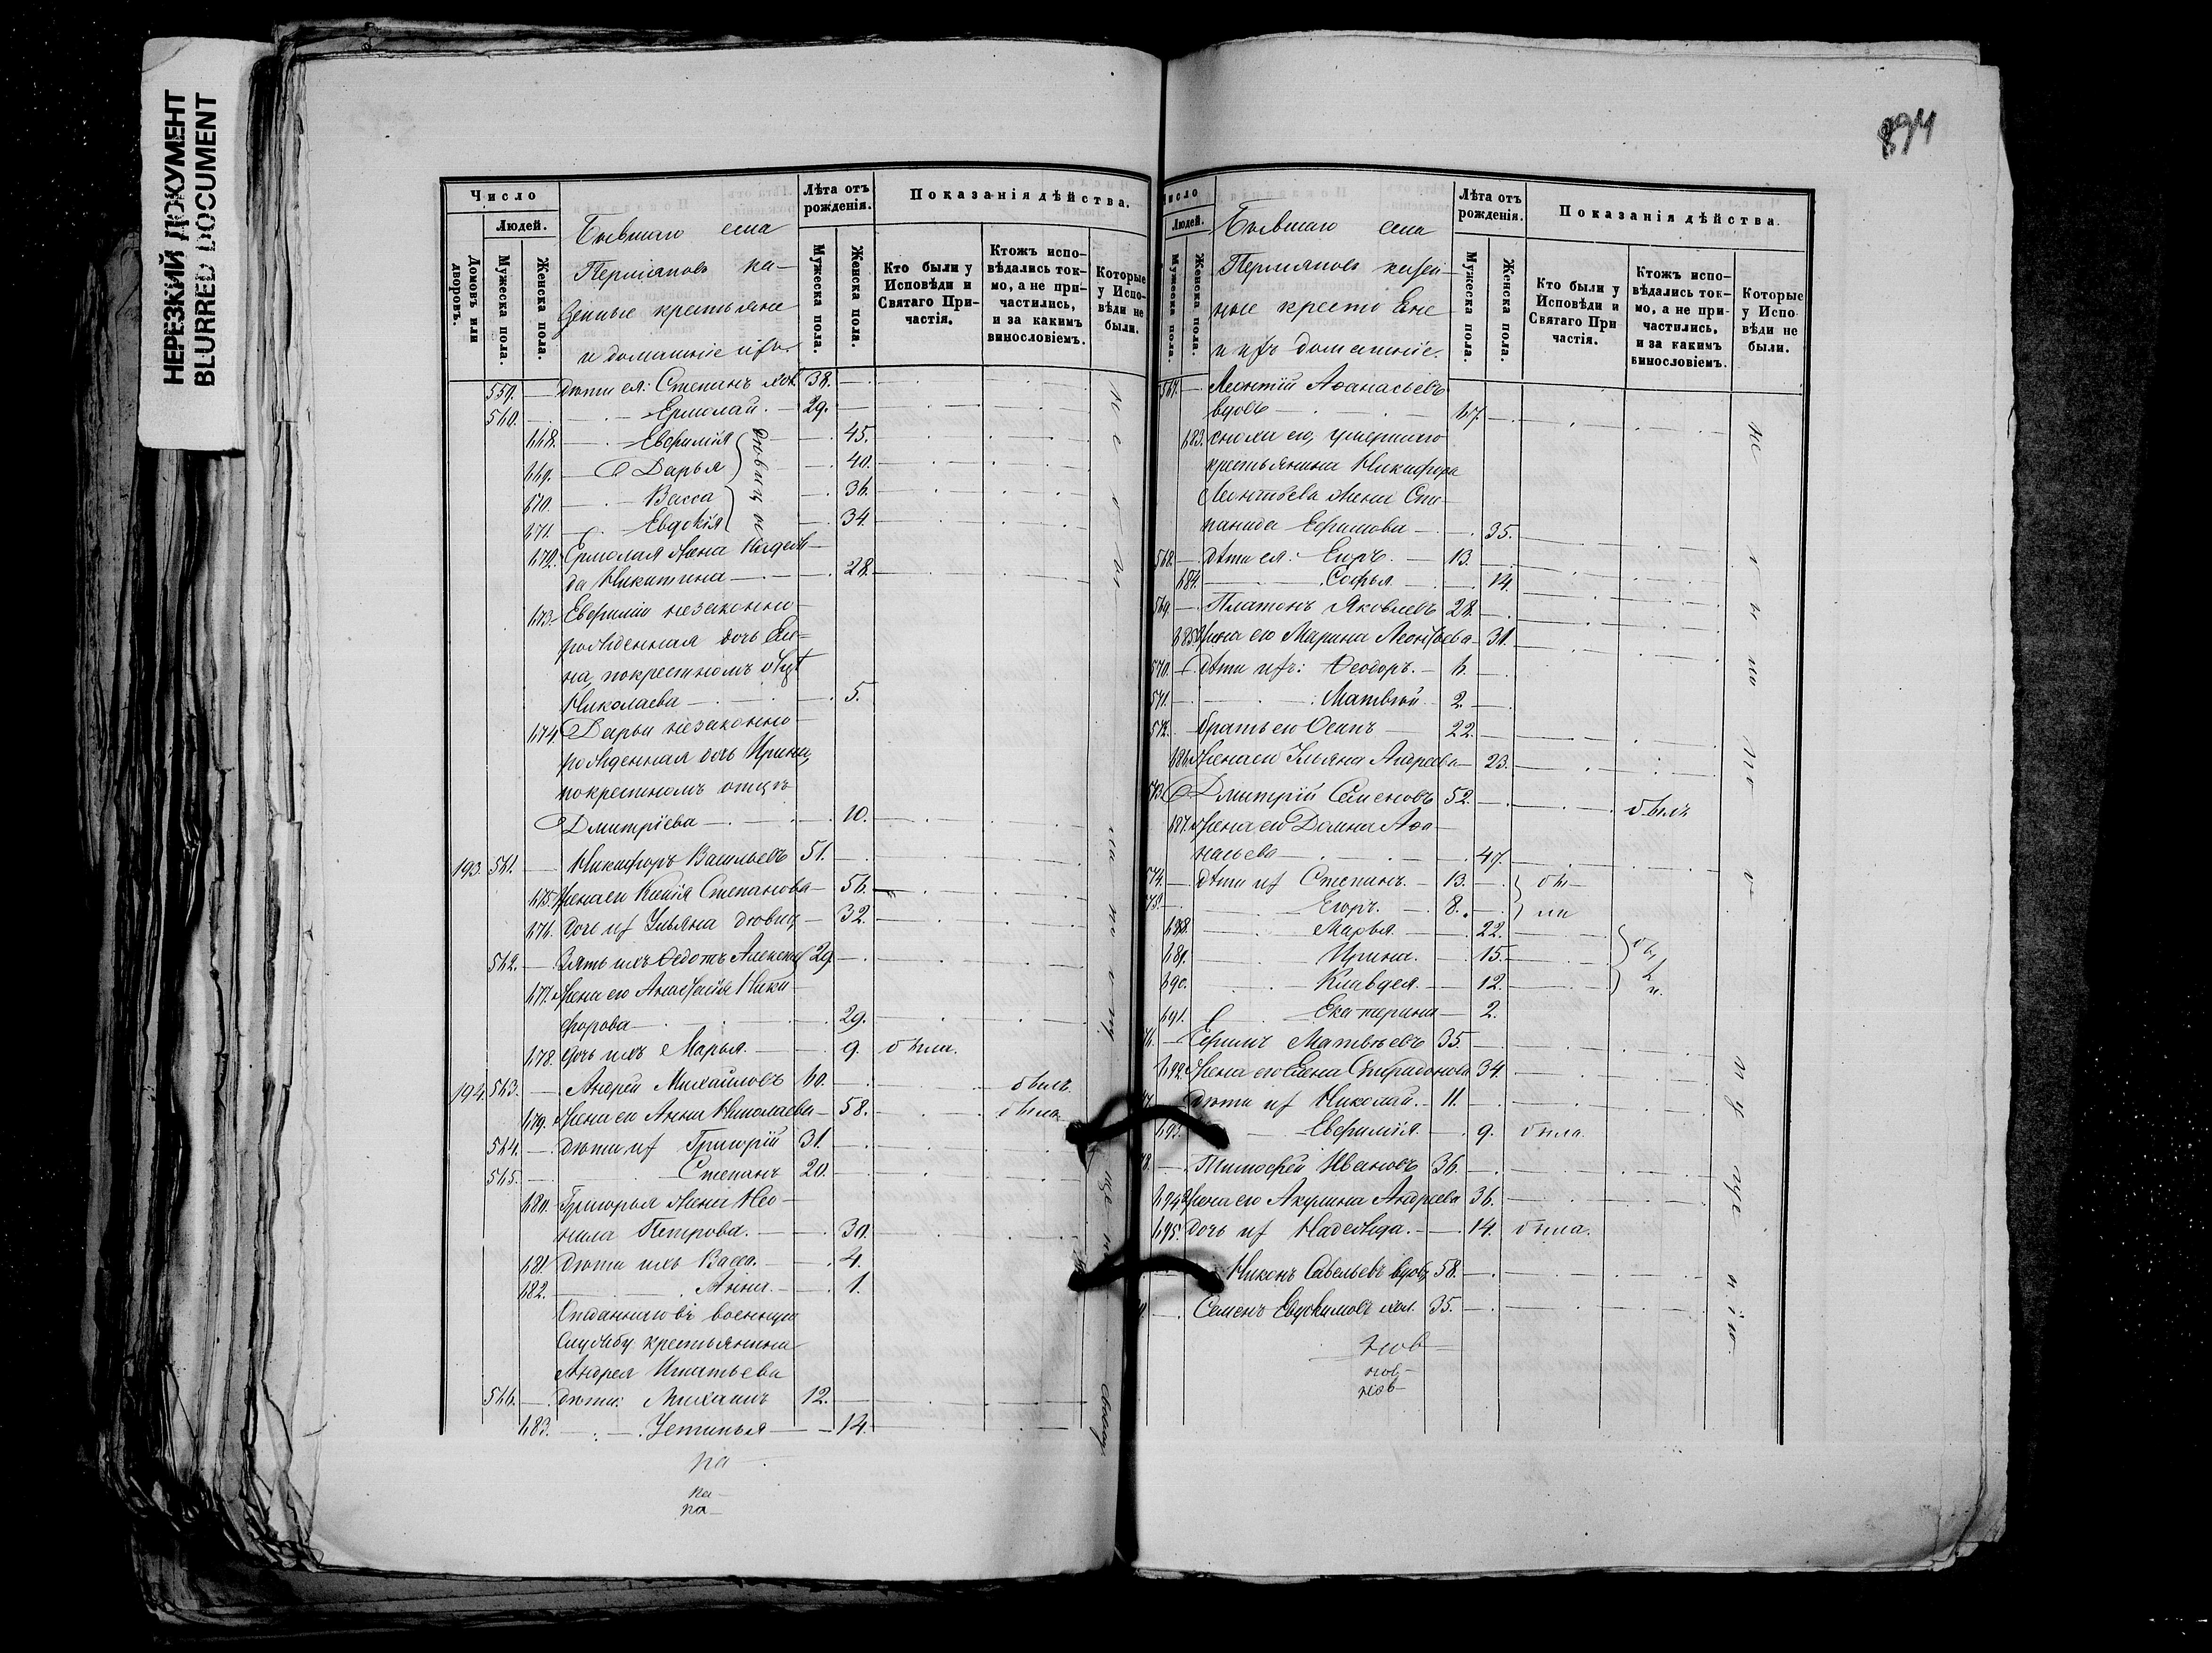 НЕРЕЗКИЙ ДОКУМЕНТ
BLURRED DOCUMENT
894
Число
Людей.
Домовъ или дворовъ.
Мужеска пола.
Женска пола.
Бывшаго села
Пермяковъ ка-
зенные крестьяне
и домашніе ихъ.
Лѣта отъ рожденія.
Мужеска пола.
Женска пола.
Показанія дѣйства.
Кто были у Исповѣди и Святаго Причастія.
Ктожъ исповѣдались токмо, а не причастились, и за какимъ винословіемъ.
Которые у Исповѣди не были.
559. дѣти ея: Степанъ хол. 38.
560. Ермолай. 29.
668. Евѳимія 45.
669. Дарья 40.
670. Васса 36.
671. Евдокія 34.
дѣвицы
672. Ермолая жена Надеж-
да Никитина 28.
673. Евѳиміи незаконно-
рожденная дочь Еле-
на, по крестномъ отцѣ
Николаева 5.
674. Дарьи незаконно
рожденная дочь Ирина,
по крестномъ отцѣ
Дмитріева 10.
193. 561. Никифоръ Васильевъ 51.
675. Жена его Ксенія Степанова 56.
676. Дочь их Ульяна дѣвица 32.
562. Зять ихъ Ѳедотъ Алексѣев 29.
677. Жена его Анастасія Ники-
форова 29.
678. Дочь ихъ Марья. 9. была.
194. 563. Андрей Михайловъ 60. былъ.
679. Жена его Анна Николаева 58. была.
564. Дѣти их Григорій 31.
565. Степанъ 20.
680. Григорья жена Нео-
нила Петрова. 30.
681. Дѣти ихъ Васса. 4.
682. Анна. 1.
Отданнаго въ военную
службу крестьянина
Андрея Игнатьева
566. дѣти: Михаилъ 12.
683. Устинья 14.
ка
ка
ка
Число
Людей.
Мужеска пола.
Женска пола.
Бывшаго села
Пермяковъ казен-
ные крестьяне
и ихъ домашніе.
Лѣта отъ рожденія.
Мужеска пола.
Женска пола.
Показанія дѣйства.
Кто были у Исповѣди и Святаго Причастія.
Ктожъ исповѣдались токмо, а не причастились, и за какимъ винословіемъ.
Которые у Исповѣди не были.
567. Леонтій Аѳанасьевъ
вдовъ 67.
683. сноха его, умершаго
крестьянина Никифора
Леонтьева жена Сте-
панида Ефимова 35.
568. дѣти ея: Егоръ. 13.
684. Софья 14.
569 Платонъ Яковлевъ 28.
685. Жена его Марина Леонтьева 31.
570. Дѣти ихъ: Ѳеодоръ. 6.
571. Матвѣй 2.
572. братъ его Осипъ 22.
686. Жена его Ульяна Андреева 23.
573. Дмитрій Семеновъ 52. былъ
687. Жена его Домна Аѳа-
насьева 47.
574. дѣти их Степанъ. 13. бы-
575. Егоръ. 8. ли
688. Марья 22.
689. Ирина. 15.
690. Клавдея. 12.
691. Екатерина 2.
Ефимъ Матвѣевъ 35.
692. Жена его Елена Спиридонова 34.
Дѣти их Николай. 11.
693. Евѳимія. 9. была.
Тимоѳей Ивановъ 36.
694. Жена его Акулина Андреева 36.
695. Дочь их Надежда. 14. была.
Никонъ Савельевъ вдовъ 58.
Семенъ Евдокимовъ хол. 35.
ков
ков
ков